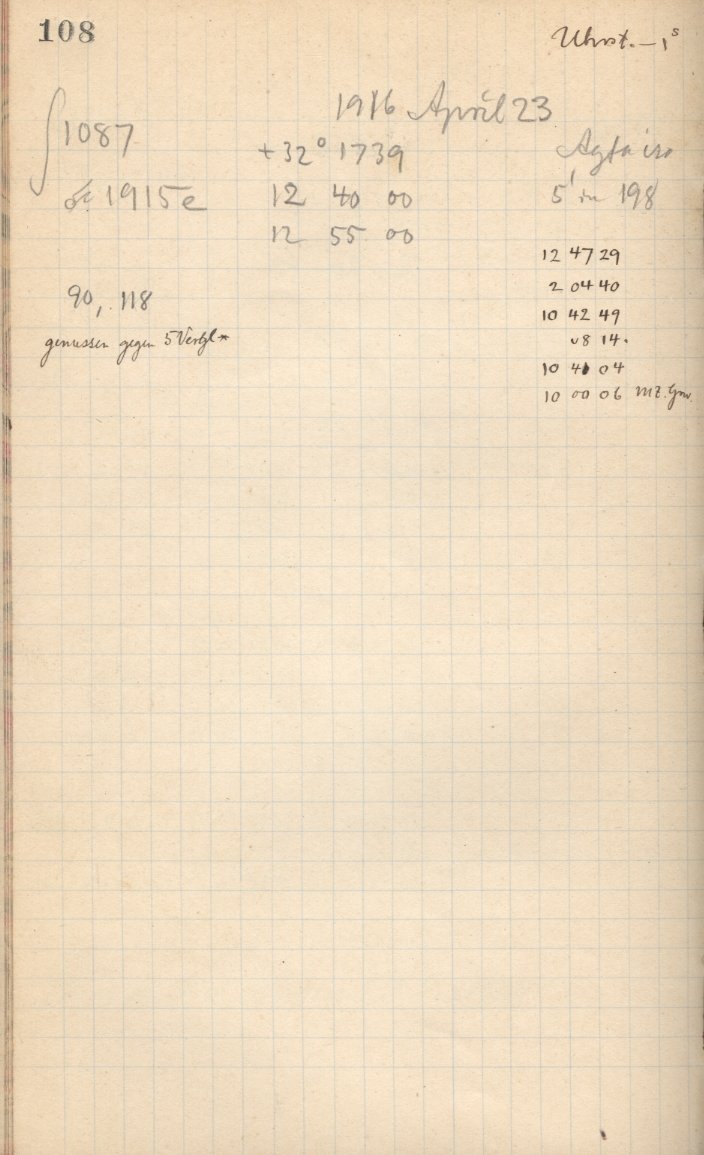 108
Uhrst. – 1ˢ
1916 April 23
1087 +32° 1739 Agfa iso
1915e 12 40 00 5' in 198
12 55 00
12 47 29
2 04 40
90, 118 10 42 49
gemessen gegen 5 Vergl * 08 14.
10 41 04
10 00 06 MZ. Grw.